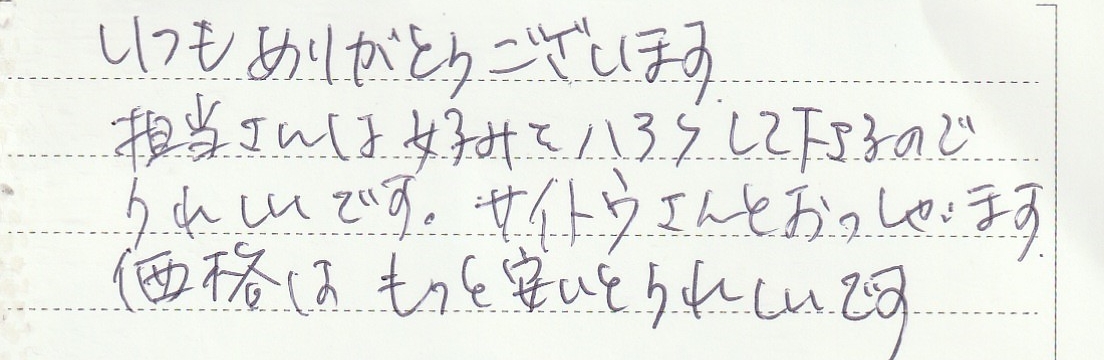 いつもありがとうございます
担当さんは好みをハアクして下さるので
うれしいです。サイトウさんとおっしゃいます
価格はもっと安いとうれしいです